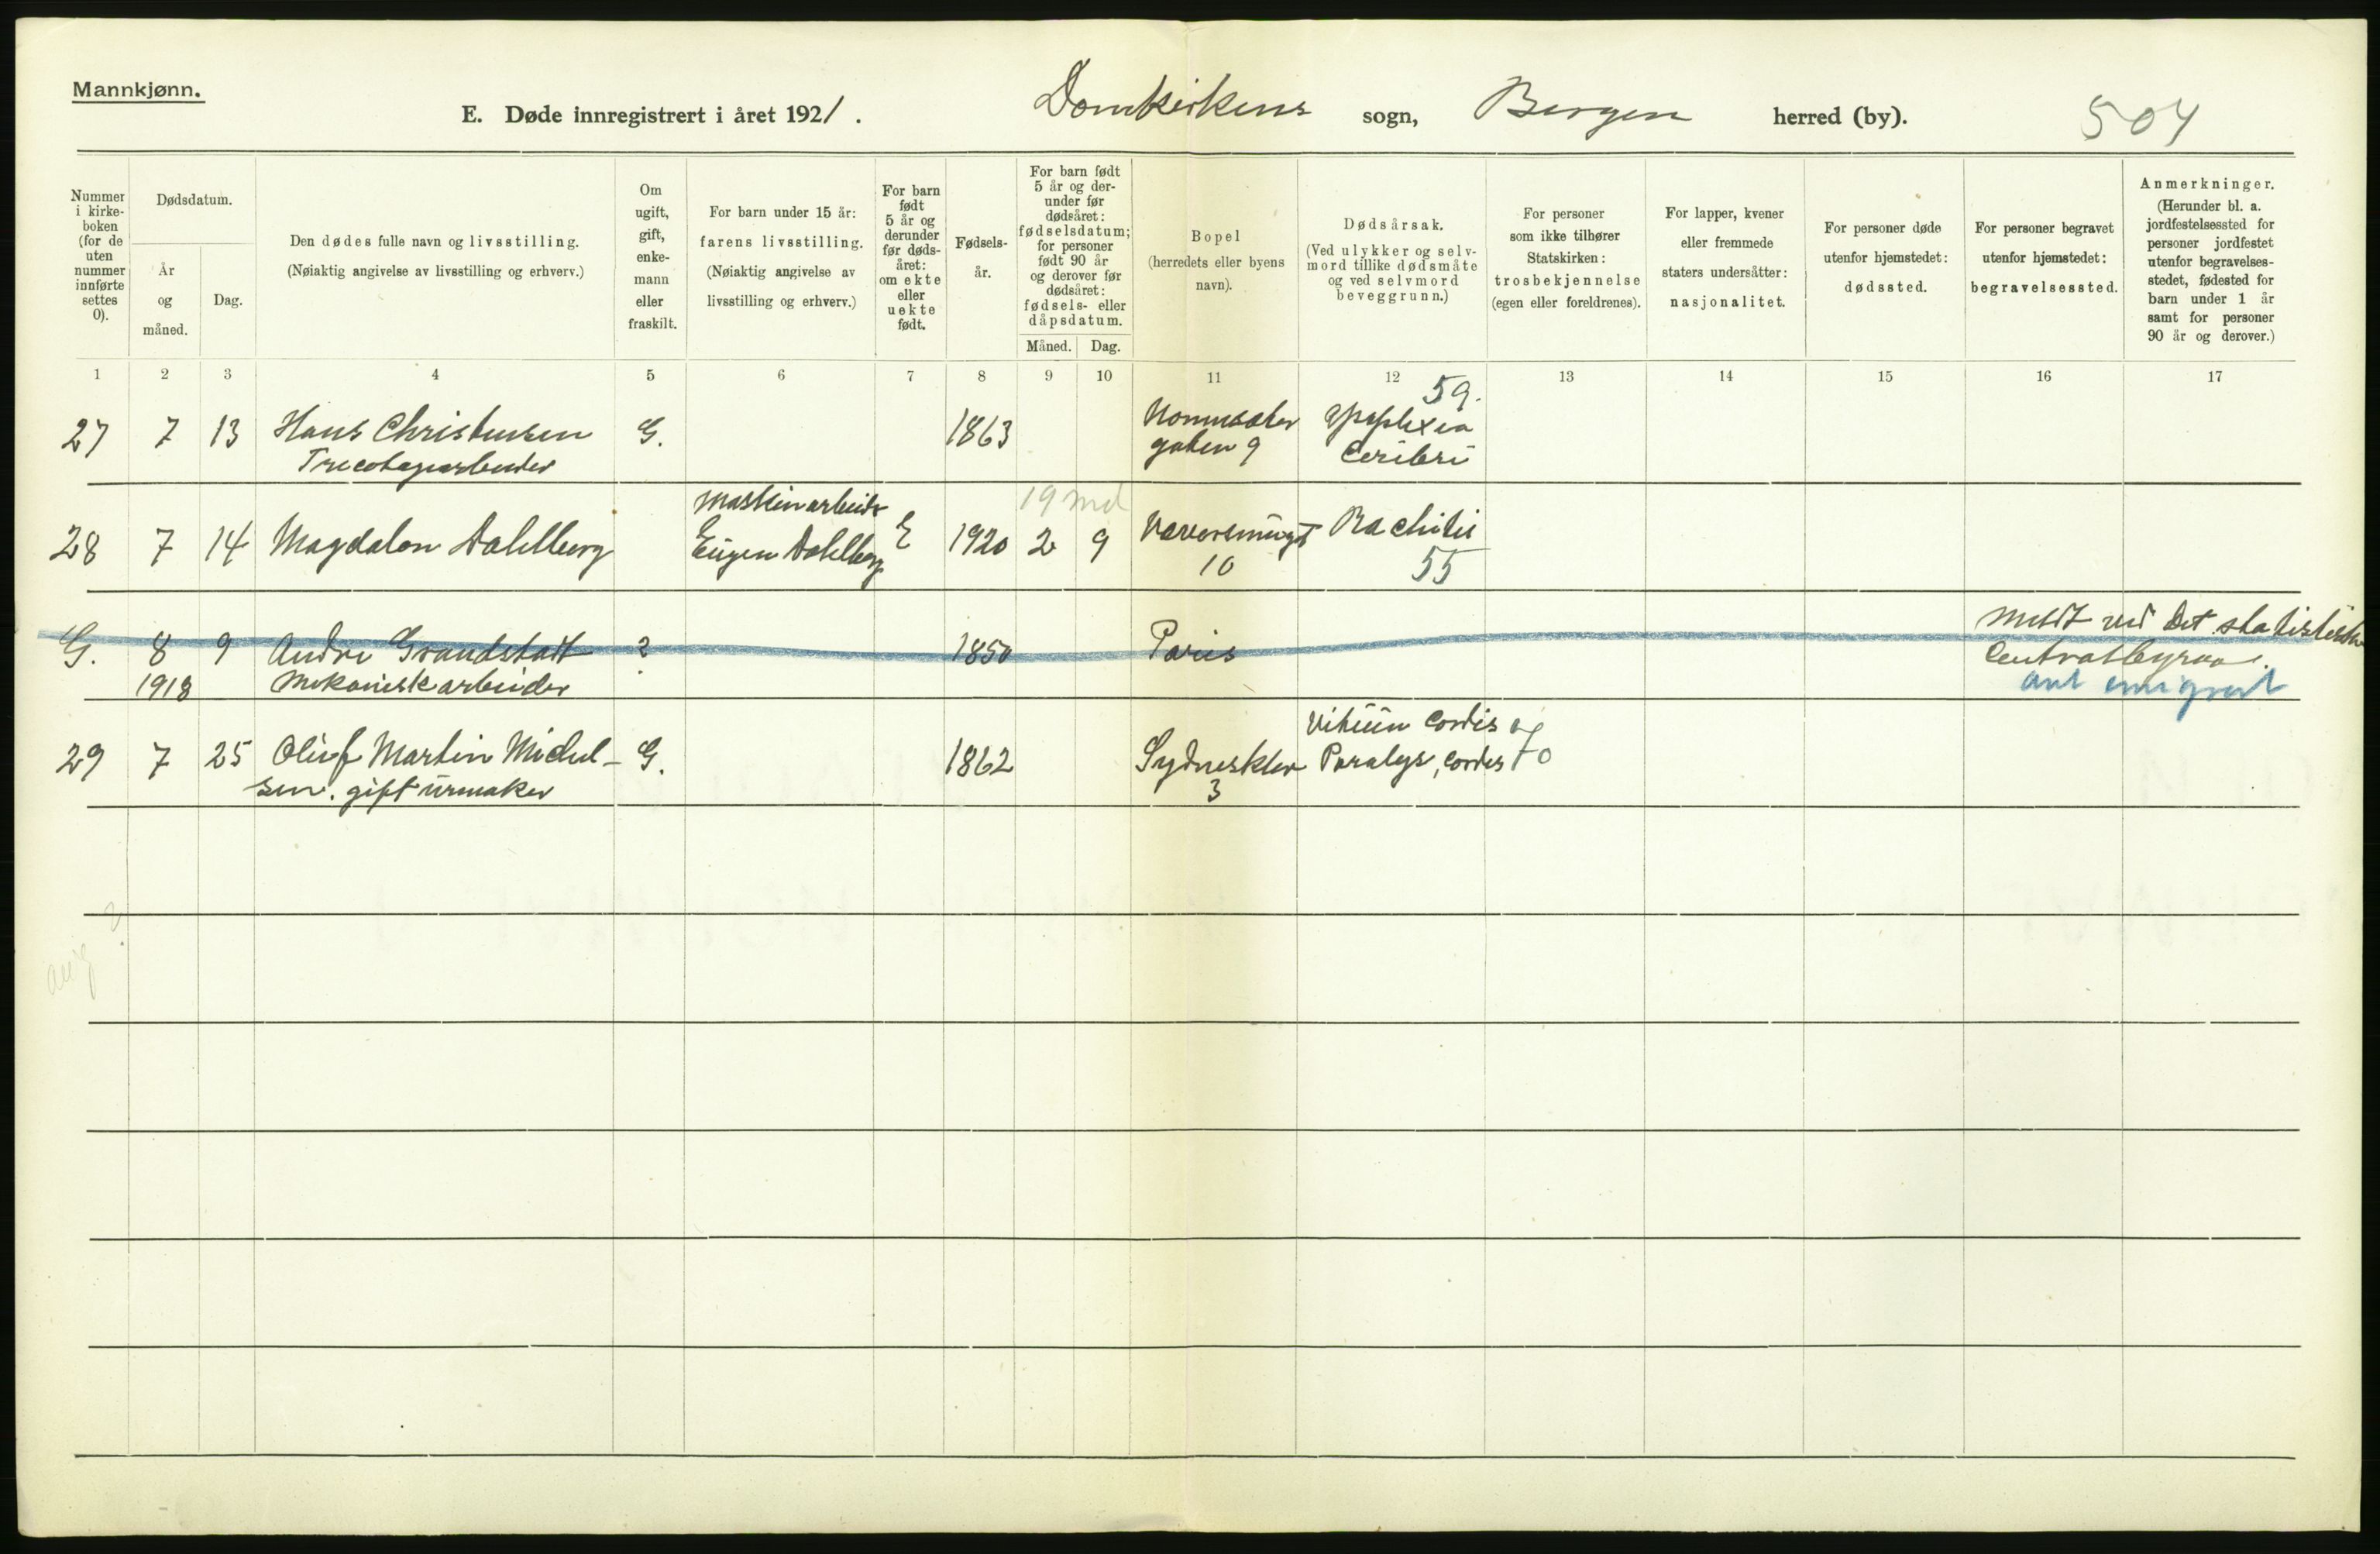 Mannkjønn.
E. Døde innregistrert i året 1921. Domkirkens sogn, Bergen herred (by). 504
Nummer i kirkeboken (for de uten nummer innførte settes 0).
Dødsdatum.
År og måned.
Dag.
Den dødes fulle navn og livsstilling.
(Nøiaktig angivelse av livsstilling og erhverv.)
Om ugift, gift, enkemann eller fraskilt.
For barn under 15 år: farens livsstilling.
(Nøiaktig angivelse av livsstilling og erhverv.)
For barn født 5 år og derunder før dødsåret: om ekte eller uekte født.
Fødselsår.
For barn født 5 år og derunder før dødsåret: fødselsdatum; for personer født 90 år og derover før dødsåret: fødsels- eller dåpsdatum.
Måned. Dag.
Bopel
(herredets eller byens navn).
Dødsårsak.
(Ved ulykker og selvmord tillike dødsmåte og ved selvmord beveggrunn.)
For personer som ikke tilhører Statskirken: trosbekjennelse
(egen eller foreldrenes).
For lapper, kvener eller fremmede staters undersåtter: nasjonalitet.
For personer døde utenfor hjemstedet: dødssted.
For personer begravet utenfor hjemstedet: begravelsessted.
Anmerkninger.
(Herunder bl. a. jordfestelsessted for personer jordfestet utenfor begravelsesstedet, fødested for barn under 1 år samt for personer 90 år og derover.)
1 2 3 4 5 6 7 8 9 10 11 12 13 14 15 16 17
59.
27 7 13 Hans Christensen G. 1863 apoplexia
Tricotagearbeider gaten 9 Ceribri
Maskinarbeider 19 md
28 7 14 Magdalon Dahlberg Eugen Dahlberg E 1920 2 9 Rachitis
10 55
G. 8 9 Andre Grandstatt ? 1850 Paris Meldt ved Det statistiske
1918 Mekanisk arbeider Centralbyraa.
ant emigrert
Vitium Cordis og
29 7 25 Oluf Martin Michel- G. 1862 Sydneskler Paralys, cordis 70
sen. gift urmaker 3